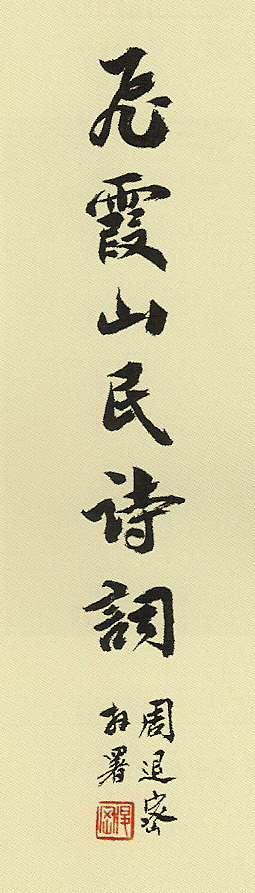 飛霞山民詩詞
周退密
拜署